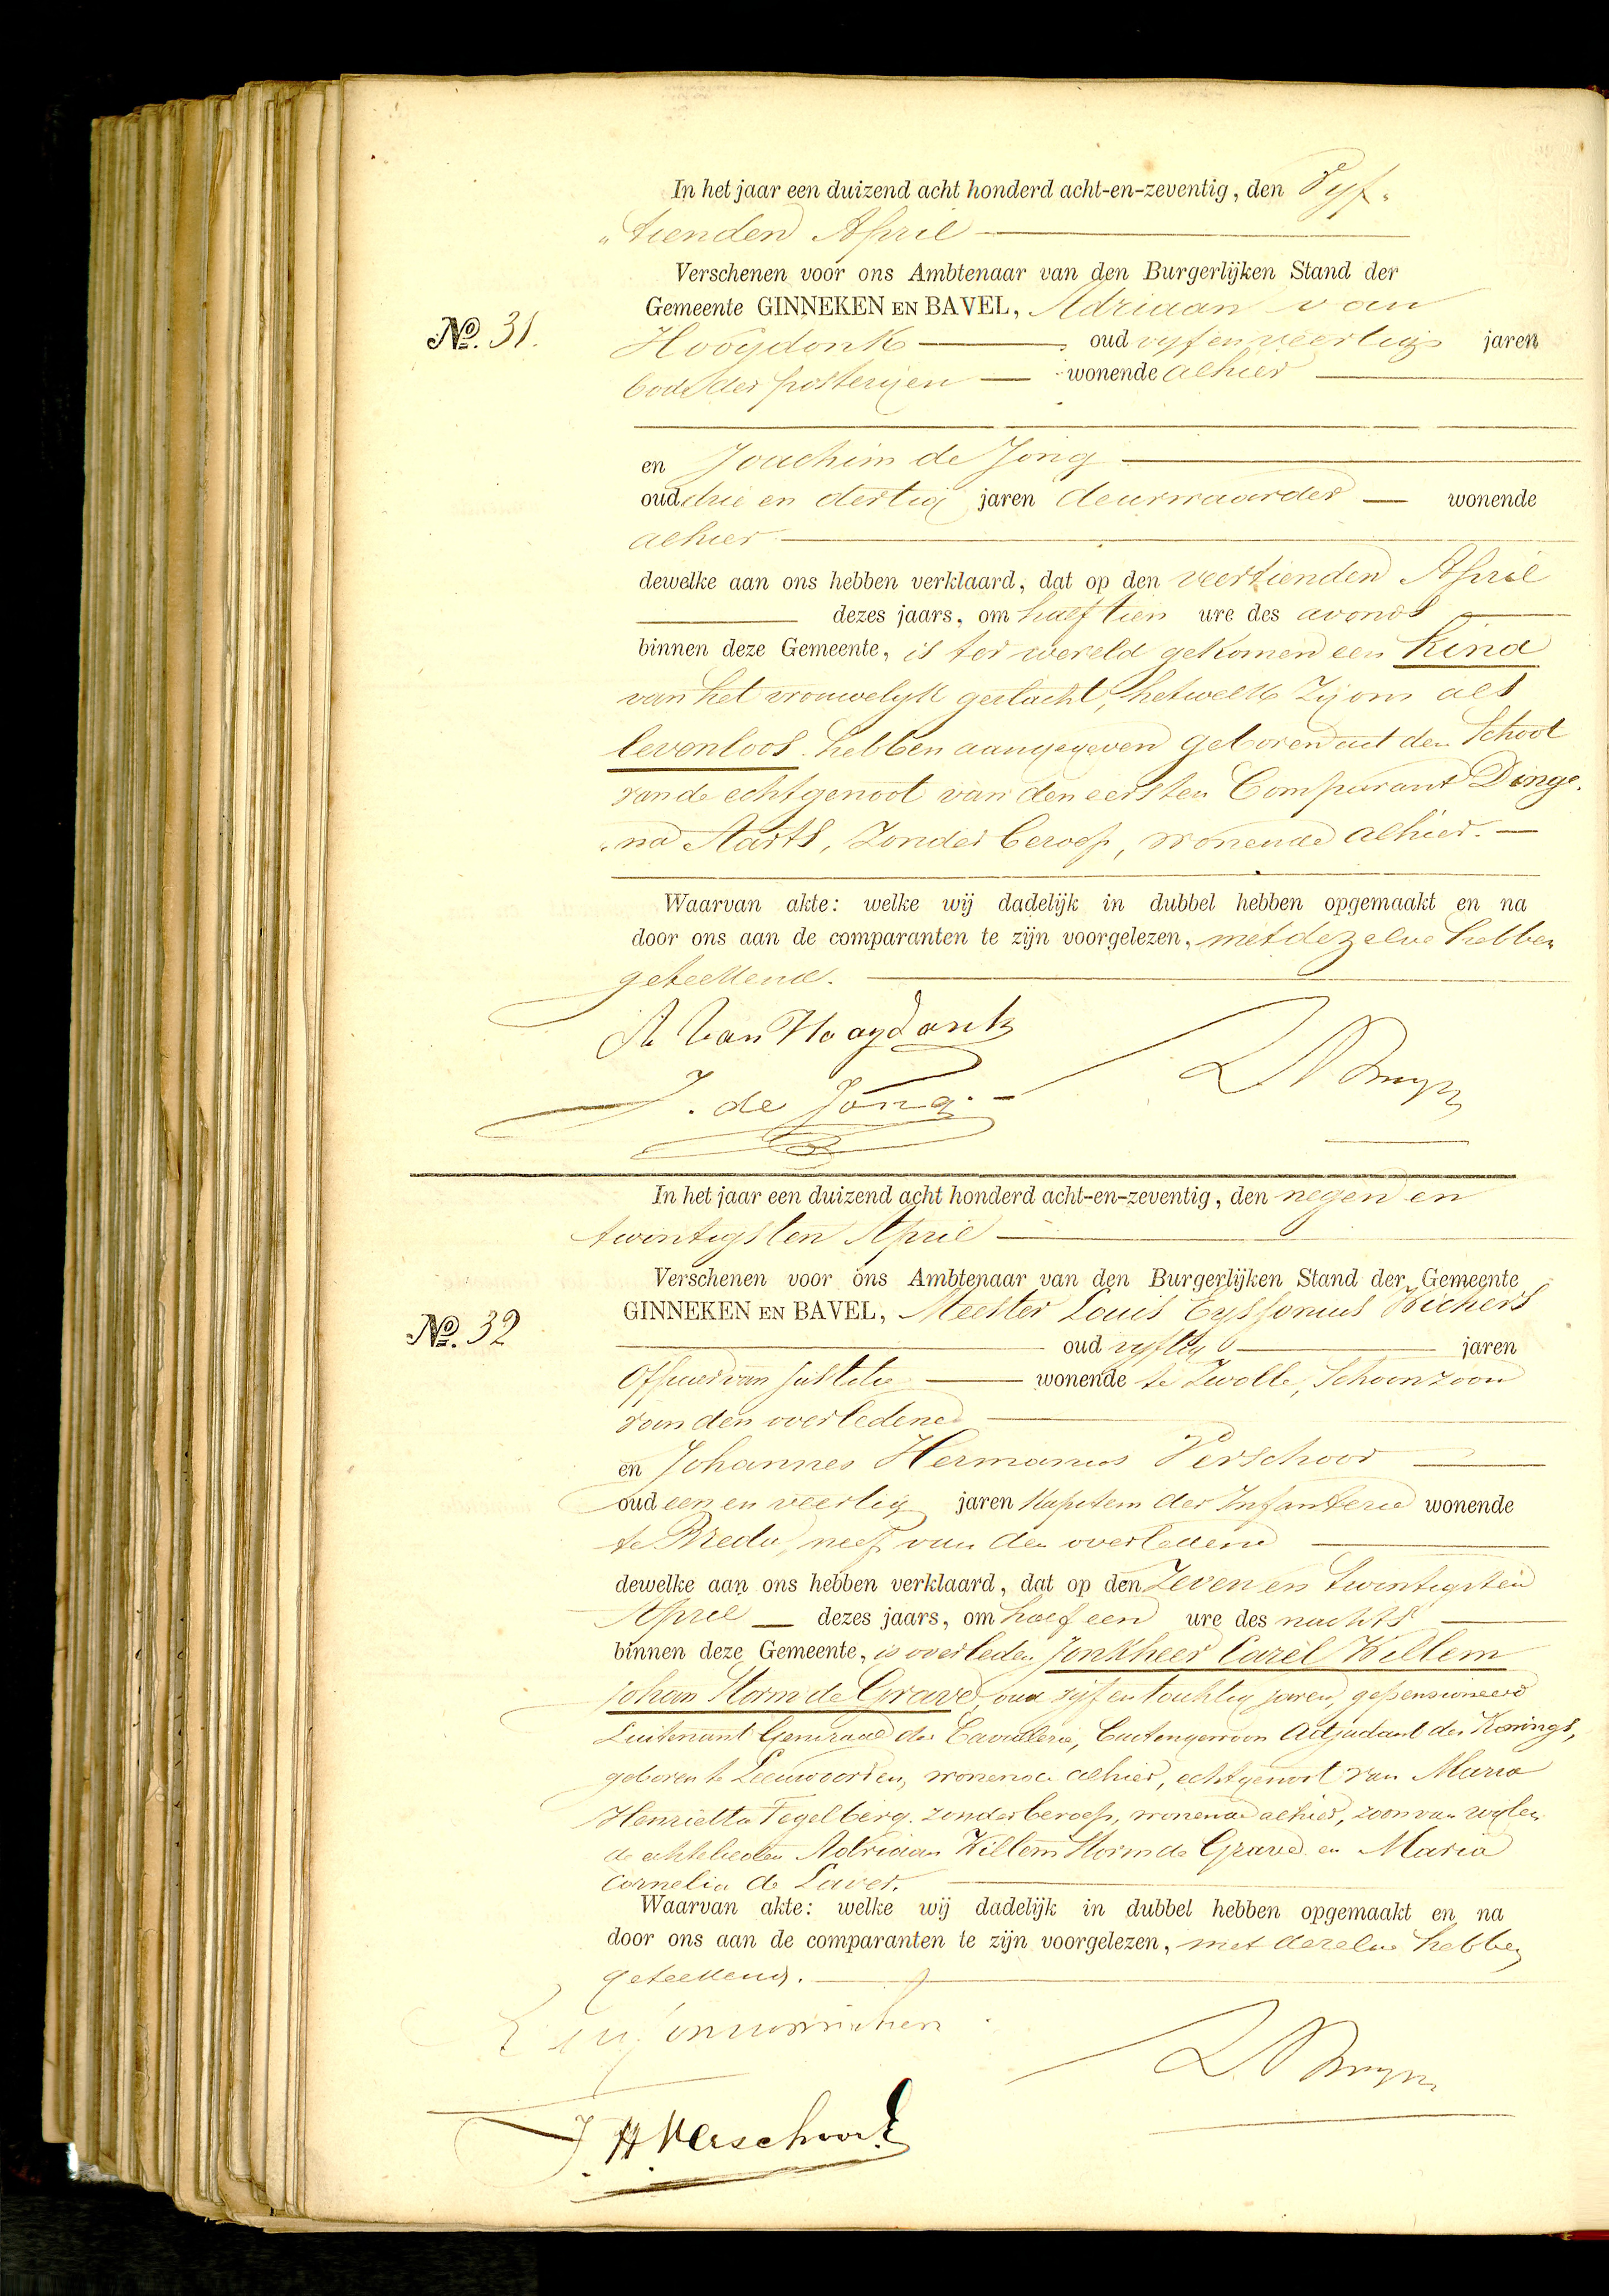 In het jaar een duizend acht honderd acht-en-zeventig, den Vijf-
"tienden April
Verschenen voor ons Ambtenaar van den Burgerlijken Stand der
Gemeente GINNEKEN EN BAVEL, Adriaan van
No. 31.
Hooydonk oud vijf en veertig jaren
bode der posterijen wonende alhier
en Joachim de Jong
oud drie en dertig jaren deurwaarder wonende
alhier
dewelke aan ons hebben verklaard, dat op den veertienden April
dezes jaars, om half tien ure des avonds
binnen deze Gemeente, is ter wereld gekomen een Kind
van het vrouwelijk geslacht, hetwelk zij ons als
levenloos hebben aangegeven geboren uit den schoot
van de echtgenoot van den eersten Comparant Dinge-
"na Aarts, zonder beroep, wonende alhier.
Waarvan akte: welke wij dadelijk in dubbel hebben opgemaakt en na
door ons aan de comparanten te zijn voorgelezen, met dezelve hebben
geteekend.
A Van Hooydonk
J. de Jong.
In het jaar een duizend acht honderd acht-en-zeventig, den negen en
twintigsten April
Verschenen voor ons Ambtenaar van den Burgerlijken Stand der Gemeente
GINNEKEN EN BAVEL, Meester Louis Eyssonius Wichers
No. 32
oud vijftig jaren
Officier van Justitie wonende te Zwolle, Schoonzoon
van den overledene
en Johannes Hermanus Verschoor
oud een en veertig jaren Kapitein der Infanterie wonende
te Breda, neef van den overledene
dewelke aan ons hebben verklaard, dat op den Zeven en twintigsten
April dezes jaars, om half een ure des nachts
binnen deze Gemeente, is overleden Jonkheer Carel Willem
Johan Storm de Grave, oud vijf en tachtig jaren, gepensioneerd
Luitenant Generaal der Cavallerie, Buitengewoon Adjudant des Konings,
geboren te Leeuwarden, wonende alhier, echtgenoot van Maria
Henrietta Tegelberg, zonder beroep, wonende alhier, zoon van wijlen
de echtelieden Adriaan Willem Storm de Grave en Maria
Cornelia de Laver.
Waarvan akte: welke wij dadelijk in dubbel hebben opgemaakt en na
door ons aan de comparanten te zijn voorgelezen, met dezelve hebben
geteekend.
J. H Verschoor